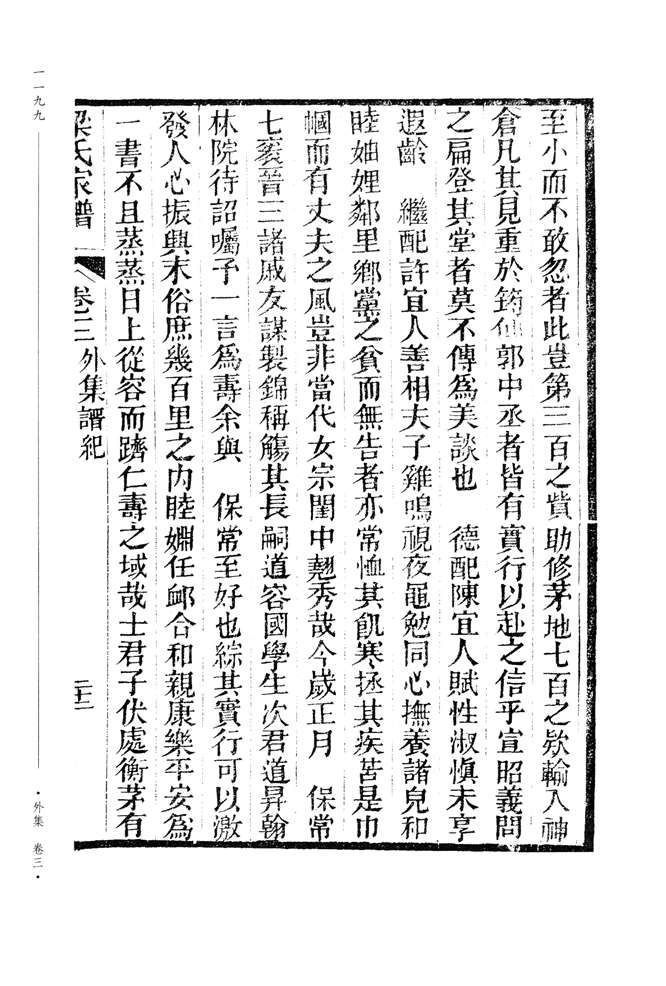 至小而不敢忽者此豈第三百之貲助修茅地七百之欵輸入神
倉凡其見重於筠仙郭中丞者皆有實行以赴之信乎宣昭義問
之扁登其堂者莫不傳爲美談也　德配陳宜人賦性淑慎未享
遐齡　繼配許宜人善相夫子雞鳴視夜黽勉同心撫養諸兒和
睦妯娌鄰里鄉黨之貧而無告者亦常恤其飢寒拯其疾苦是巾
幗而有丈夫之風豈非當代女宗閨中翹秀哉今歲正月　保常
七袠晉三諸戚友謀製錦稱觴其長嗣道容國學生次君道昇翰
林院待詔囑予一言爲壽余與　保常至好也綜其實行可以激
發人心振興末俗庶幾百里之内睦婣任卹合和親康樂平安爲
一書不且蒸蒸日上從容而躋仁壽之域哉士君子伏處衡茅有
梁氏家譜　卷三　外集譜紀　二十三
一一九九
・外集　卷三・